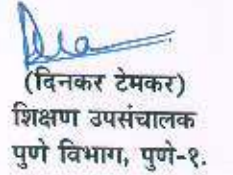 (दिनकर टेमकर)
शिक्षण उपसंचालक
पुणे विभाग, पुणे-१.